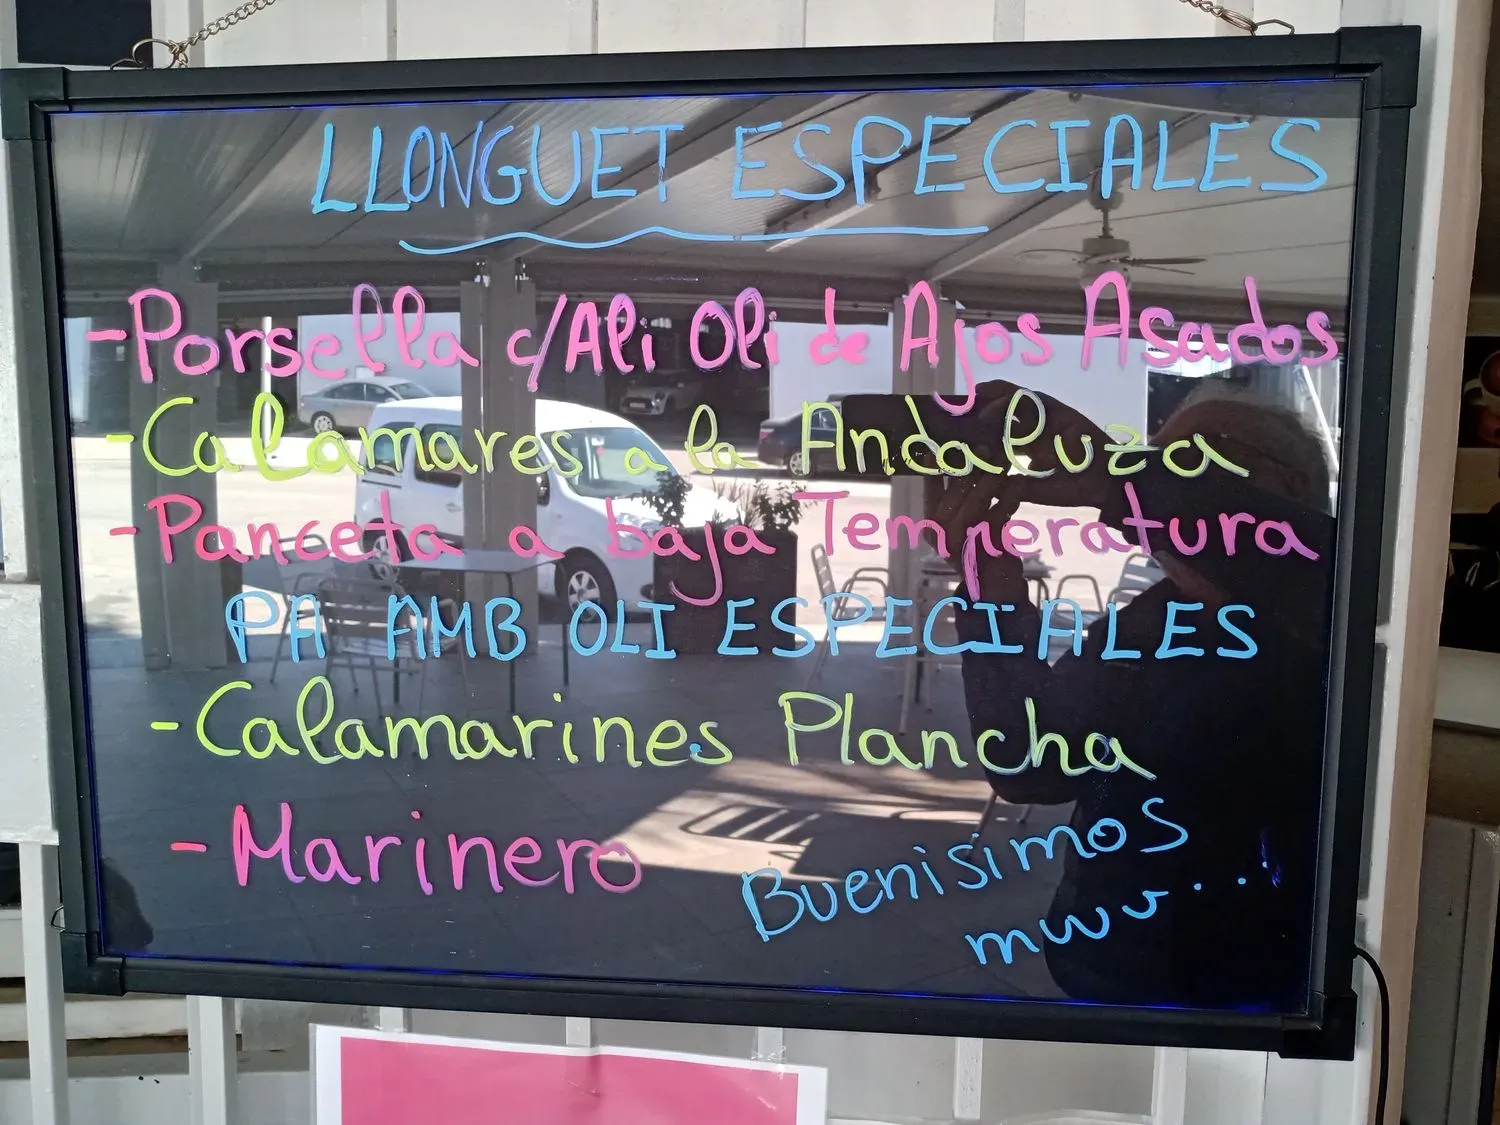 LLONGUET ESPECIALES
-Porsella c/Ali Oli de Ajos Asados
-Calamares a la Andaluza
-Panceta a baja Temperatura
PA AMB OLI ESPECIALES
-Calamarines Plancha
-Marinero
Buenisimos